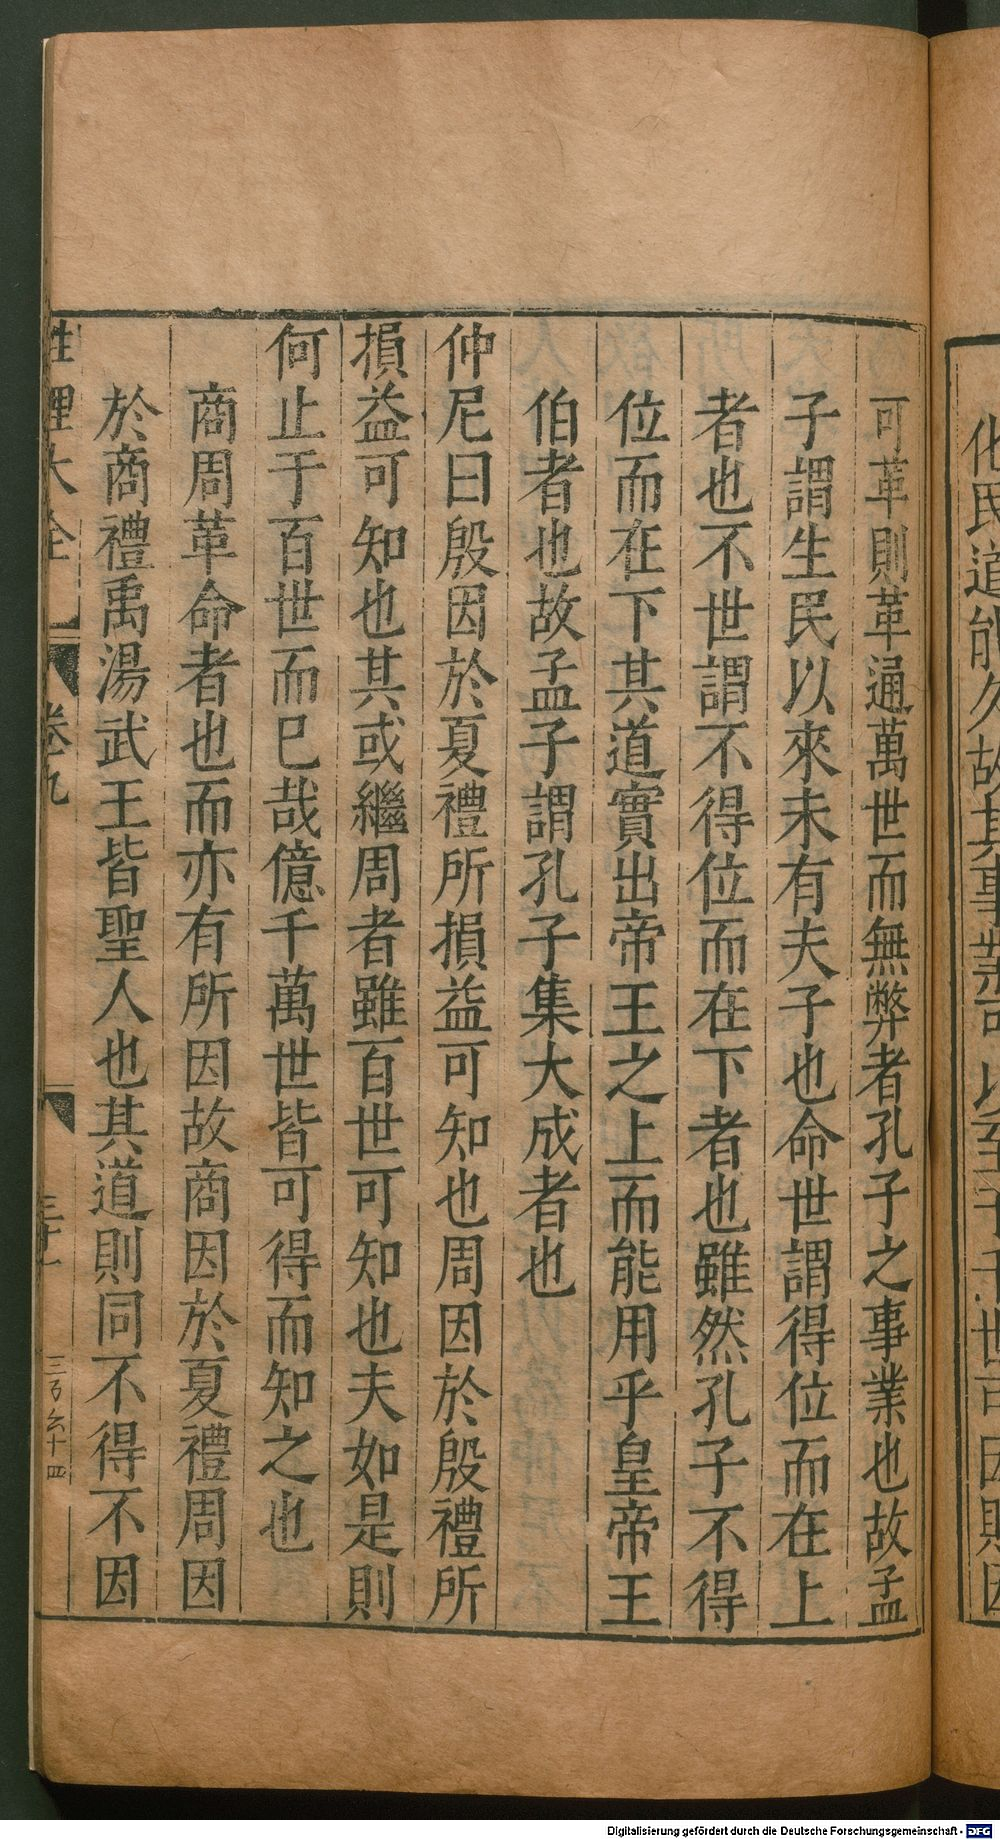 化民道能久故其事業可以至于千世可因則因
可革則革通萬世而無弊者孔子之事業也故孟
子謂生民以來未有夫子也命世謂得位而在上
者也不世謂不得位而在下者也雖然孔子不得
位而在下其道實出帝王之上而能用乎皇帝王
伯者也故孟子謂孔子集大成者也
仲尼曰殷因於夏禮所損益可知也周因於殷禮所
損益可知也其或繼周者雖百世可知也夫如是則
何止于百世而已哉億千萬世皆可得而知之也
商周革命者也而亦有所因故商因於夏禮周因
於商禮禹湯武王皆聖人也其道則同不得不因
性理大全 卷九 三十一 三百六十四
Digitalisierung gefördert durch die Deutsche Forschungsgemeinschaft - DFG